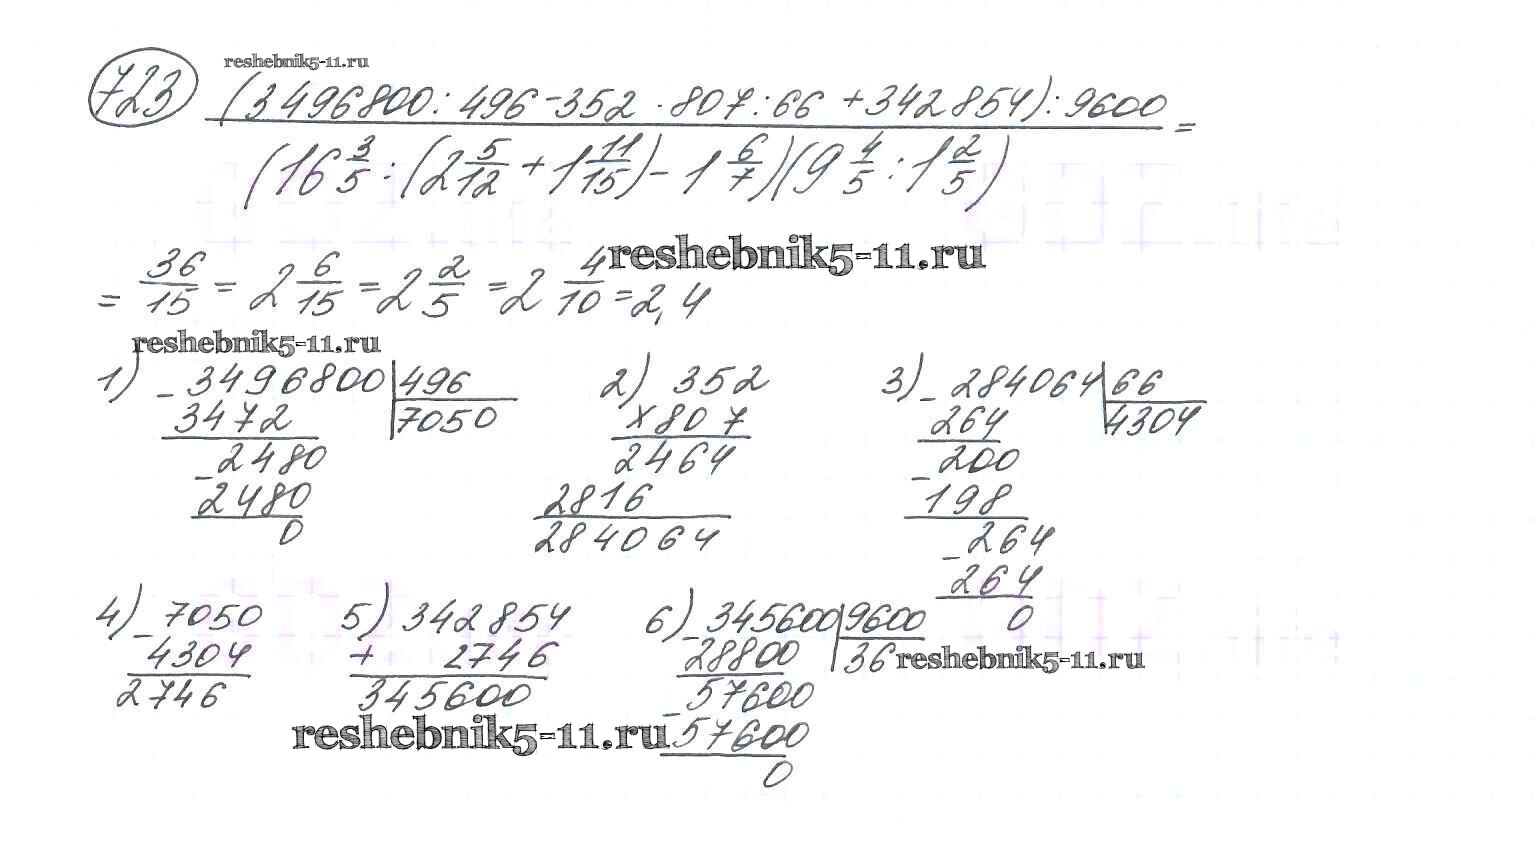 reshebnik5-11.ru
723 (3496800 : 496 - 352 · 807 : 66 + 342854) : 9600
(16 3/5 : (2 5/12 + 1 11/15) - 1 6/7)(9 4/5 : 1 2/5) =
= 36/15 = 2 6/15 = 2 2/5 = 2 4/10 = 2,4
reshebnik5-11.ru
reshebnik5-11.ru
1) - 3496800 | 496
3472 7050
- 2480
2480
0
2) 352
× 807
2464
2816
284064
3) - 284064 | 66
264 4304
- 200
198
- 264
264
0
4) - 7050
4304
2746
5) 342854
+ 2746
345600
6) - 345600 | 9600
28800 36
- 57600
57600
0
reshebnik5-11.ru
reshebnik5-11.ru